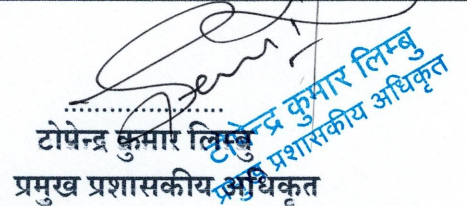 ....................
टोपेन्द्र कुमार लिम्बु
प्रमुख प्रशासकीय अधिकृत
टोपेन्द्र कुमार लिम्बु
प्रमुख प्रशासकीय अधिकृत